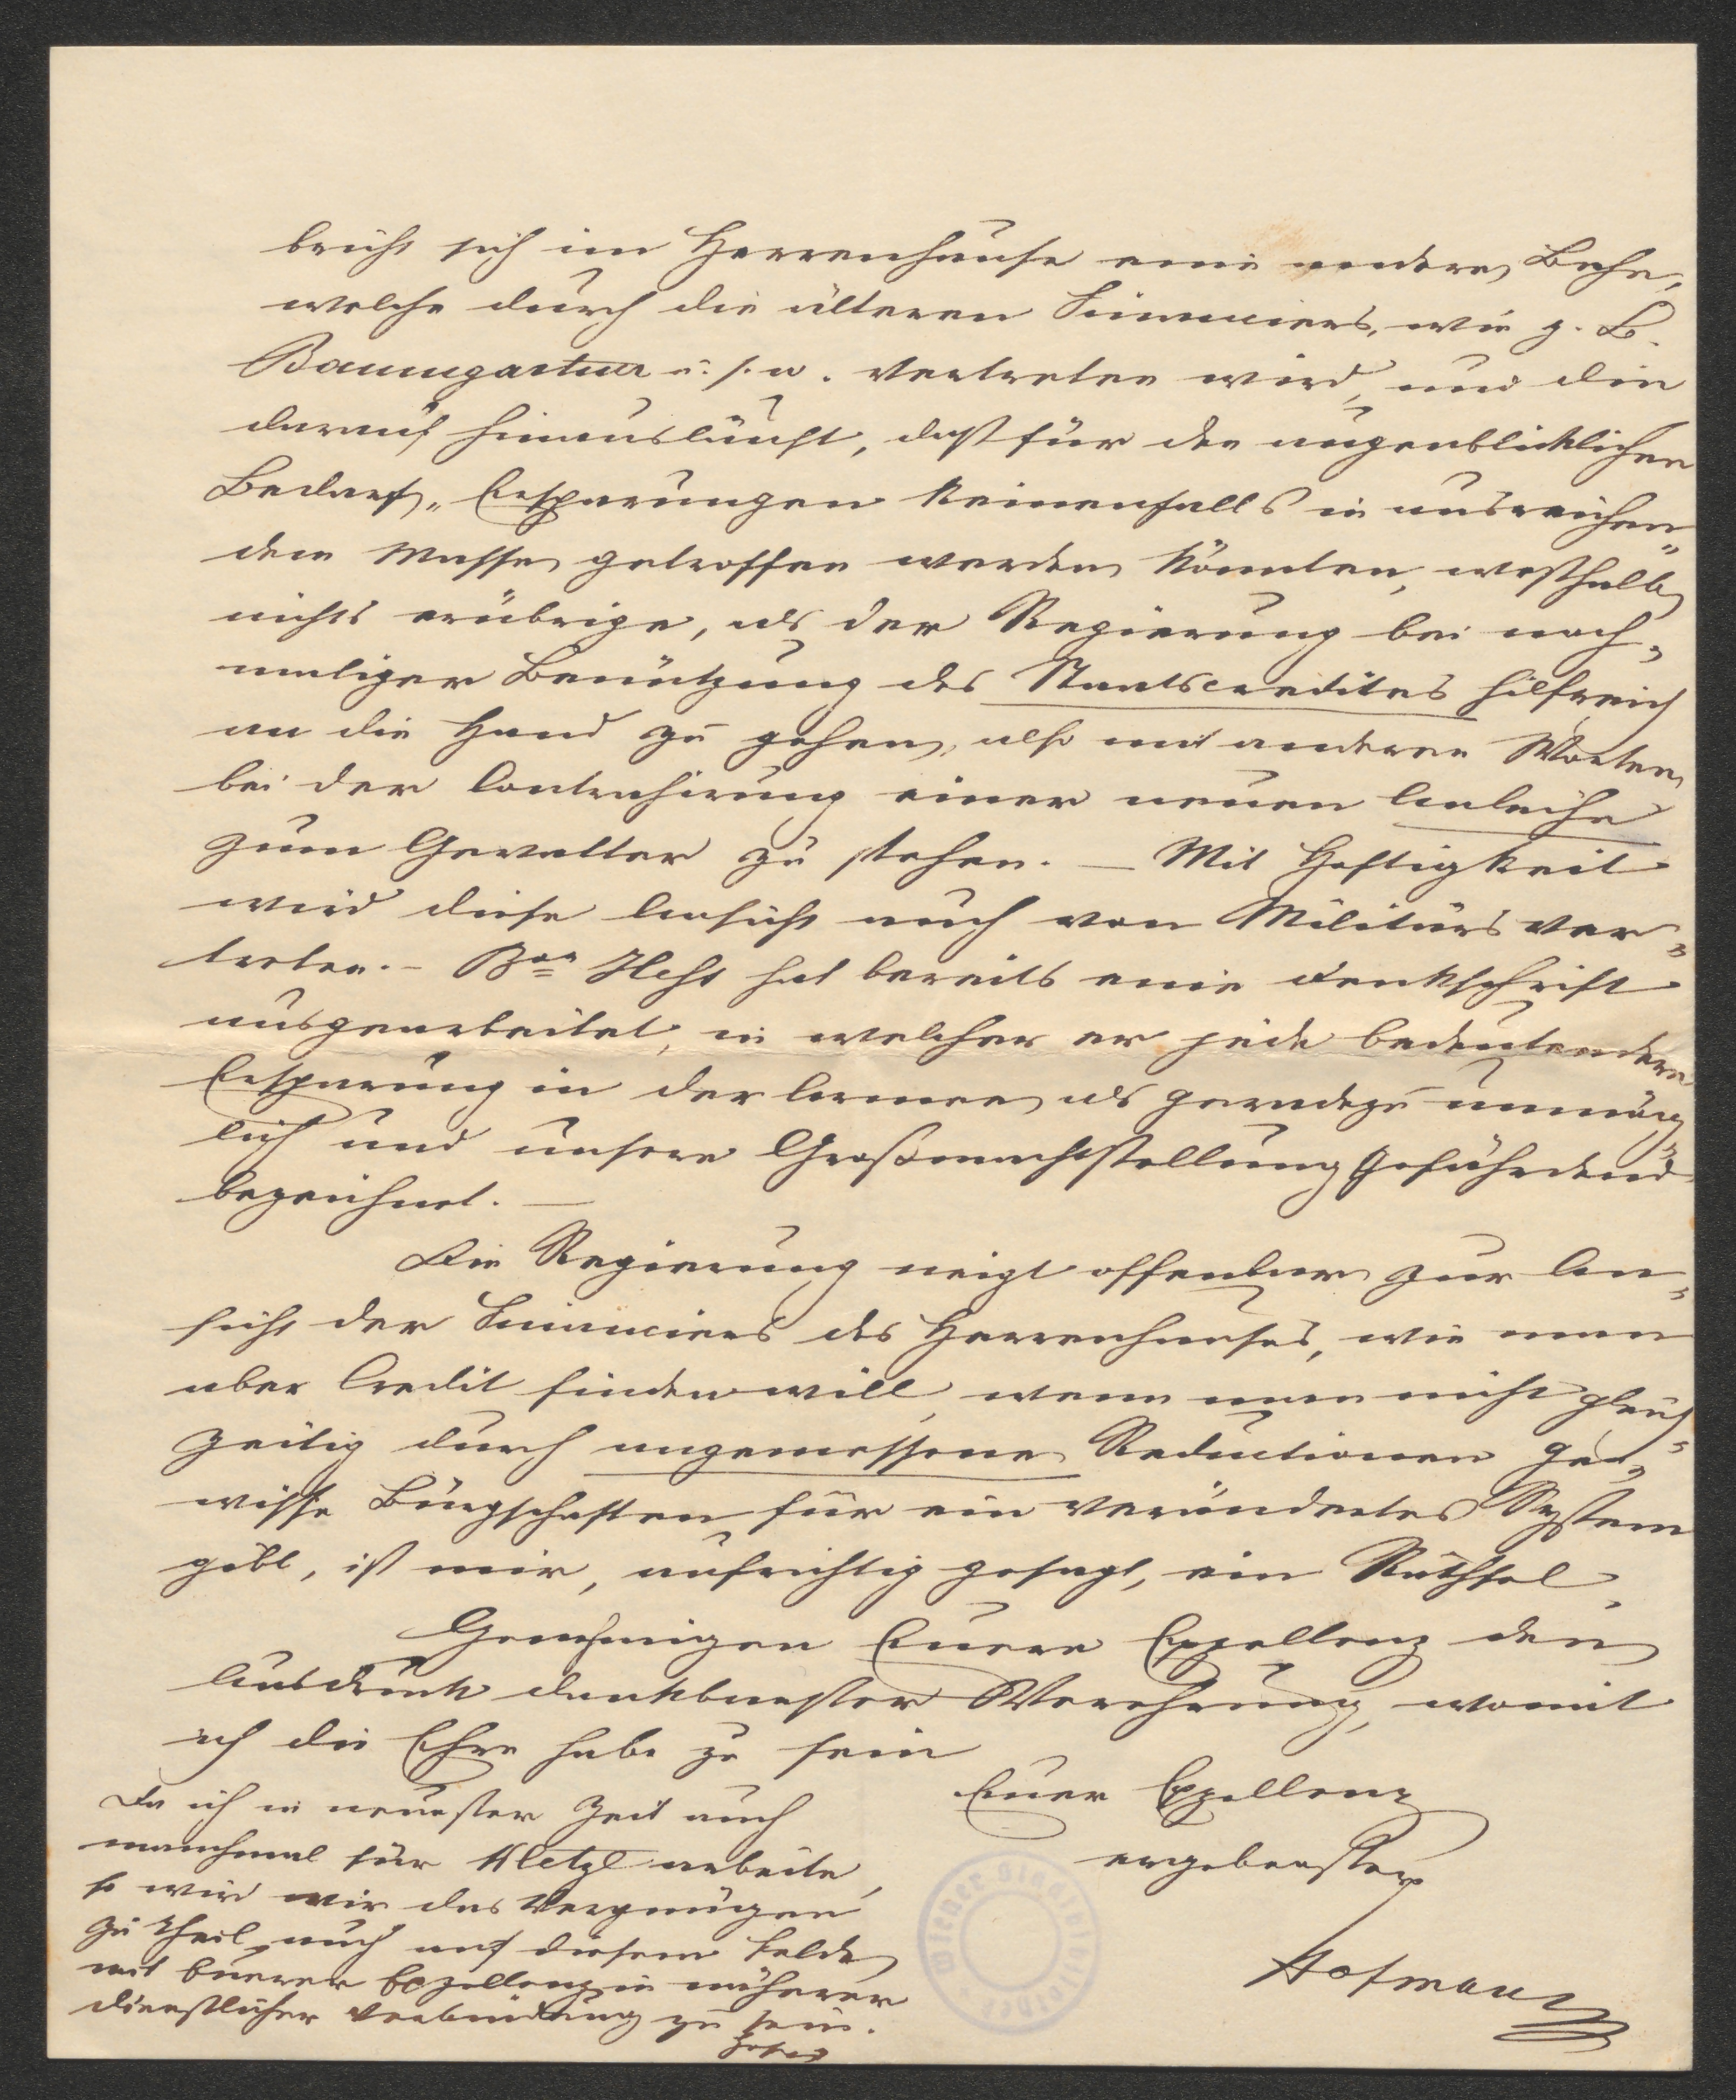 bricht sich im Herrenhause eine andere Bahn,
welche durch die älteren Financiers, wie z. B.
Baumgartner u. s. w. vertreten wird, und die
darauf hinausläuft, daß für den augenblicklichen
Bedarf, Ersparungen keinenfalls in ausreichen-
dem Masse getroffen werden könnten, weßhalb
nichts erübrige, als der Regierung bei noch-
maliger Benützung des Staatscredites hilfreich
an die Hand zu gehen, also mit anderen Worten
bei der Contrahirung einer neuen Anleihe
zum Gevatter zu stehen. – Mit Heftigkeit
wird diese Ansicht auch von Militärs ver-
treten. – Bon Heß hat bereits eine Denkschrift
ausgearbeitet, in welcher er jede bedeutendere
Ersparung in der Armee als geradezu unmög-
lich und unsere Großmachtstellung gefährdend
bezeichnet. –
Die Regierung neigt offenbar zur An-
sicht der Financiers des Herrenhauses, wie man
aber Credit finden will, wenn man nicht gleich-
zeitig durch angemessene Reductionen ge-
wisse Bürgschaften für ein verändertes System
gibt, ist mir, aufrichtig gesagt, ein Räthsel.
Genehmigen Euere Exzellenz den
Ausdruck dankbarster Verehrung, womit
ich die Ehre habe zu sein
Euer Exzellenz
ergebenster
Hofmann
Da ich in neuester Zeit auch
manchmal für Kletzl arbeite,
so wird mir das Vergnügen
zu Theil, auch auf diesem Felde
mit Euerer Exzellenz in näherer
dienstlicher Verbindung zu sein.
Wiener Stadtbibliothek